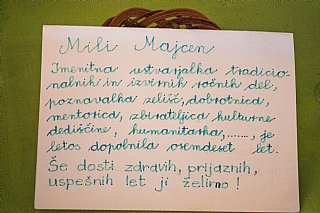 Mili Majcen
Imenitna ustvarjalka tradicio-
nalnih in izvirnih ročnih del,
poznavalka zelišč, dobrotnica,
mentorica, zbirateljica kulturne
dediščine, humanitarka, ......., je
letos dopolnila osemdeset let.
Še dosti zdravih, prijaznih,
uspešnih let ji želimo!